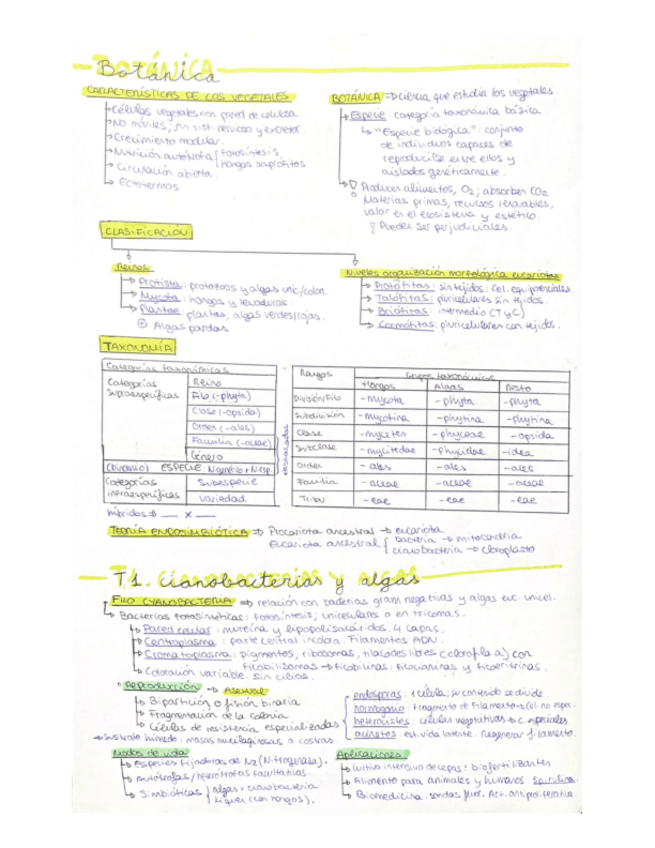 Botánica
CARACTERÍSTICAS DE LOS VEGETALES
Células vegetales con pared de celulosa
No móviles, sin sist. nervioso y excretor.
Crecimiento modular.
Nutrición autótrofa { fotosíntesis
hongos saprófitos
Circulación abierta.
Ectotermos
BOTÁNICA => ciencia que estudia los vegetales
Especie categoría taxonómica básica
"Especie biológica": conjunto
de individuos capaces de
reproducirse entre ellos y
aislados genéticamente.
Producen alimentos, O2; absorben CO2
Materias primas, recursos renovables,
valor en el ecosistema y estético.
Pueden ser perjudiciales.
CLASIFICACIÓN
Reinos
Protista: protozoos y algas unic/colon.
Mycota: hongos y levaduras
Plantae plantas, algas verdes/rojas.
Algas pardas
Niveles organización morfológica eucariotas
Protófitas: sin tejidos. Cel. equipotenciales.
Talófitas: pluricelulares sin tejidos.
Briófitas: intermedio (T y C)
Cormófitas: pluricelulares con tejidos.
TAXONOMÍA
Categorías taxonómicas
Categorías supraespecíficas Reino
Filo (-phyta)
Clase (-opsida)
Orden (-ales)
Familia (-aceae)
Género
(Binomio) ESPECIE: N.genérico + N.esp.
Categorías infraespecíficas Subespecie
Variedad
Híbridos => __ x __
Rangos Grupos taxonómicos
Hongos Algas Resto
División/Filo -mycota -phyta -phyta
Subdivisión -mycotina -phytina -phytina
Clase -mycetes -phyceae -opsida
Subclase -mycetidae -phycidae -idea
Orden -ales -ales -ales
Familia -aceae -aceae -aceae
Tribu -eae -eae -eae
TEORÍA ENDOSIMBIÓTICA => Procariota ancestral → eucariota
Eucariota ancestral { bacteria → mitocondria
cianobacteria → cloroplasto
T1. Cianobacterias y algas
FILO CYANOBACTERIA => relación con bacterias gram negativas y algas euc. unicel.
Bacterias fotosintéticas: fotosíntesis; unicelulares o en tricomas.
Pared celular: mureína y lipopolisacáridos. 4 capas.
Centroplasma: parte central incolora. Filamentos ADN.
Cromatoplasma: pigmentos, ribosomas, tilacoides libres (clorofila a) con
ficobilisomas → ficobilinas: ficocianinas y ficoeritrinas.
Coloración variable. Sin cilios.
Reproducción → Asexual
Bipartición o fisión binaria
Fragmentación de la colonia
Células de resistencia especializadas
endosporas: 1 célula; su contenido se divide
hormogonio: fragmento de filamento → cél. no espec.
heterocistes: células vegetativas → c. especiales
acinetos: est. vida latente. Regenerar filamento.
Sustrato húmedo: masas mucilaginosas o costras
Modos de vida
Especies fijadoras de N2 (Nitrogenasa).
Autótrofas/heterótrofas facultativas
Simbióticas { algas + cianobacteria
líquen (con hongos).
Aplicaciones
Cultivo intensivo de cepas: biofertilizantes
Alimento para animales y humanos Spirulina.
Biomedicina: sondas fluor. Act. antiproliferativa.